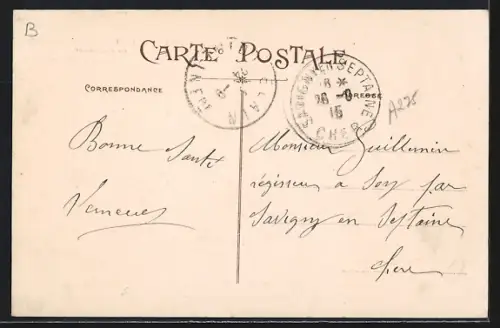 B
CARTE POSTALE
CORRESPONDANCE
ADRESSE
SAVIGNY EN SEPTAINE
26 -9
15
CHER
A225
Bonne Santé
Monsieur Guillemin
régisseur a Soy par
Savigny en Septaine
Cher